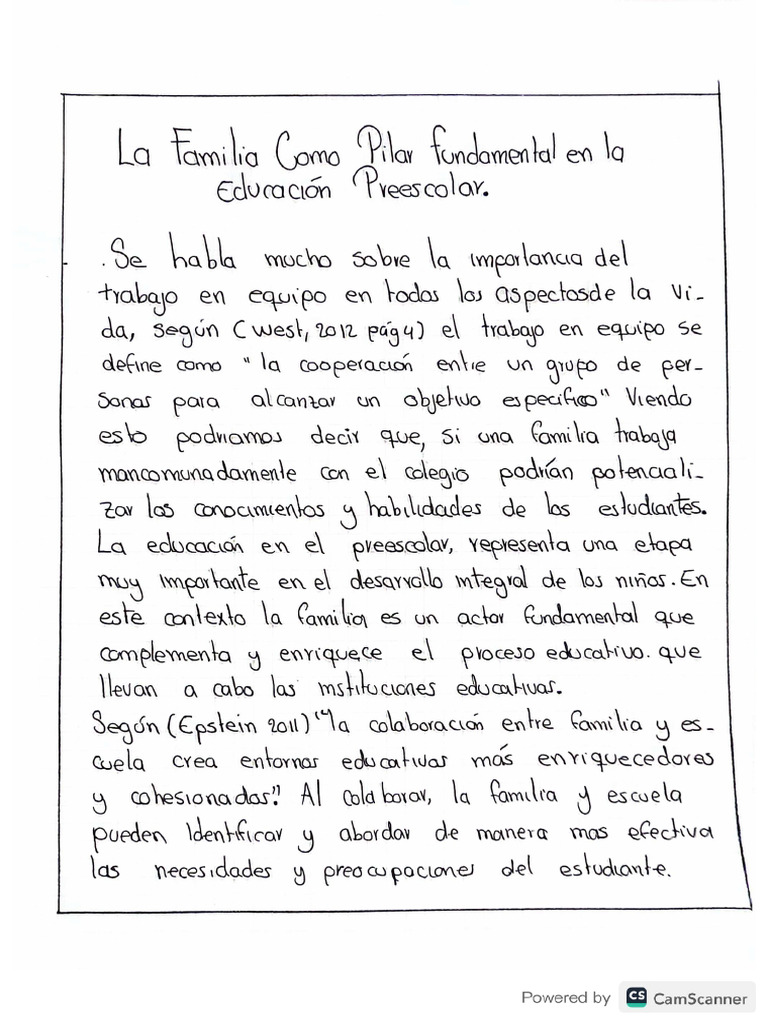 La Familia Como Pilar fundamental en la
Educación Preescolar.
.Se habla mucho sobre la importancia del
trabajo en equipo en todos los aspectosde la vi-
da, según (West, 2012 pág 4) el trabajo en equipo se
define como "la cooperación entre un grupo de per-
sonas para alcanzar un objetivo específico" Viendo
esto podriamos decir que, si una familia trabaja
mancomunadamente con el colegio podrían potenciali-
zar los conocimientos y habilidades de los estudiantes.
La educación en el preescolar, representa una etapa
muy importante en el desarrollo integral de los niños. En
este contexto la familia es un actor fundamental que
complementa y enriquece el proceso educativo. que
llevan a cabo las instituciones educativas.
Según (Epstein 2011) "la colaboración entre familia y es-
cuela crea entornos educativas más enriquecedores
y cohesionados". Al colaborar, la familia y escuela
pueden identificar y abordar de manera mas efectiva
las necesidades y preocupaciones del estudiante.
Powered by CS CamScanner